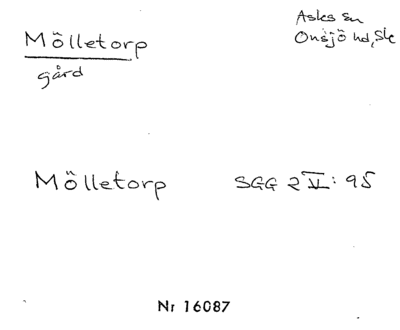 Mölletorp
gård
Asks sn
Onsjö hd, Sk
Mölletorp SGG 2 V: 95
Nr 16087